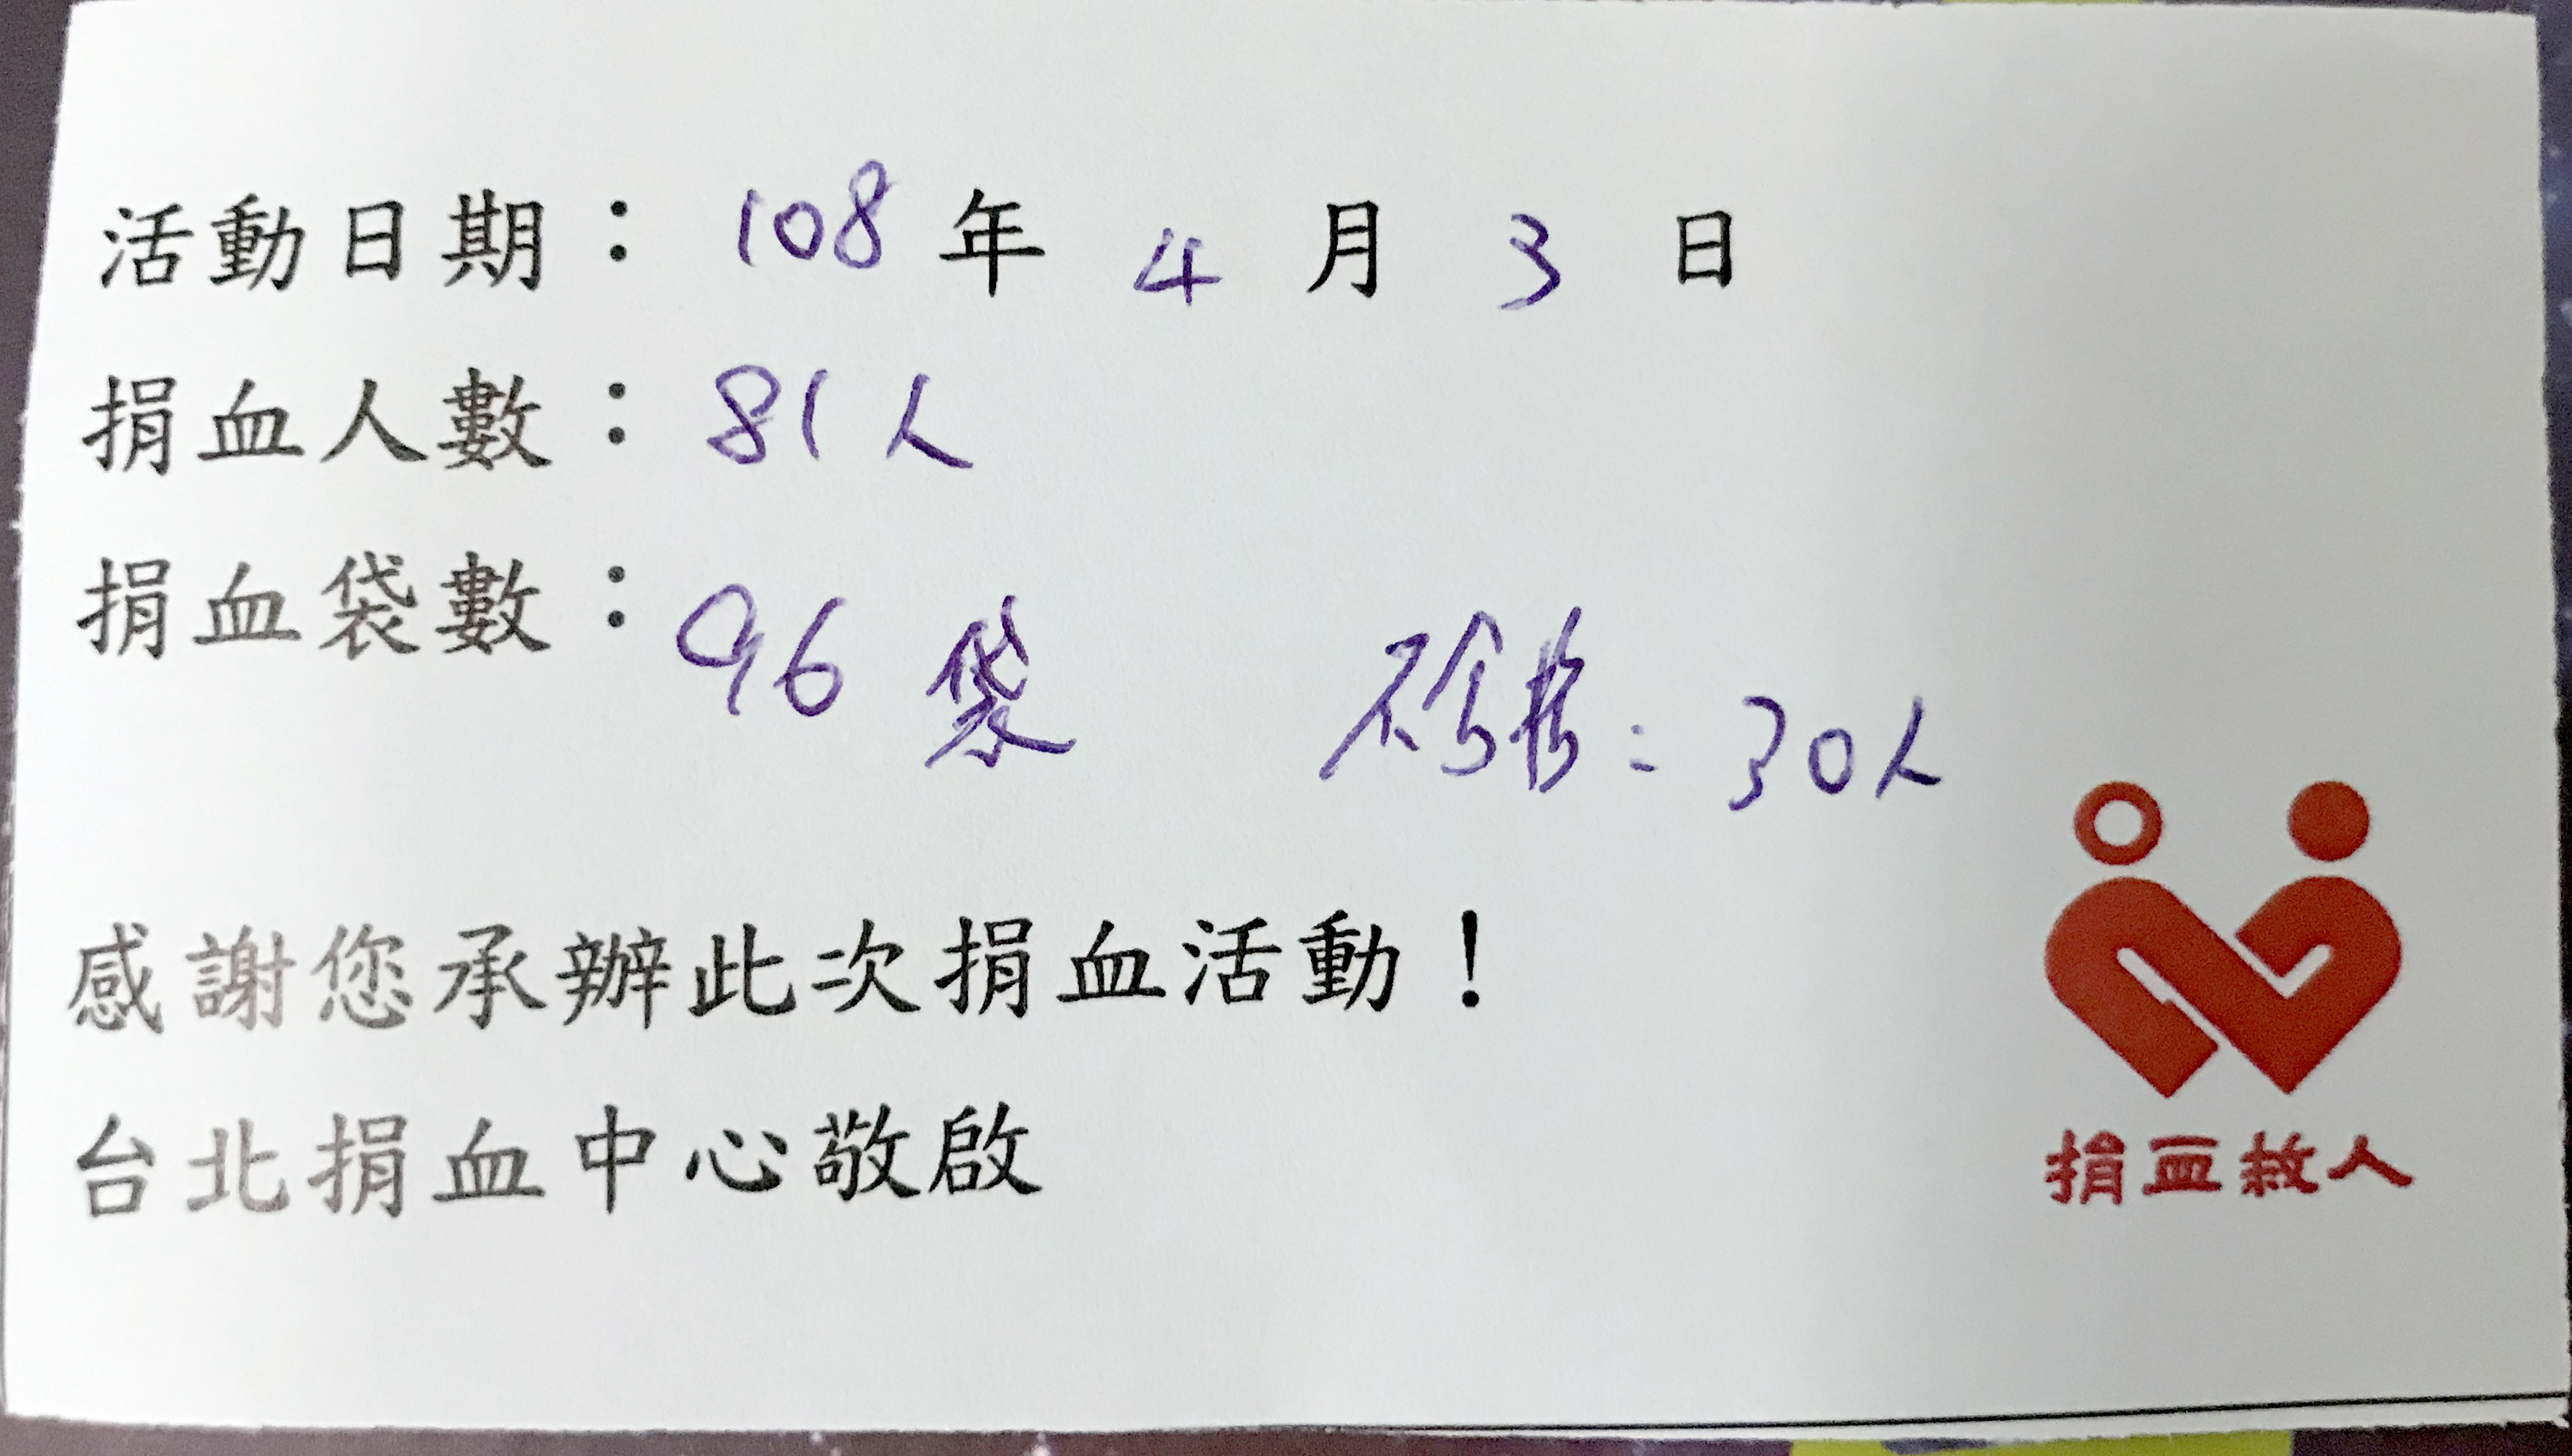 活動日期：108年 4月 3日
捐血人數：81人
捐血袋數：96袋 不合格：30人
感謝您承辦此次捐血活動！
台北捐血中心敬啟
捐血救人